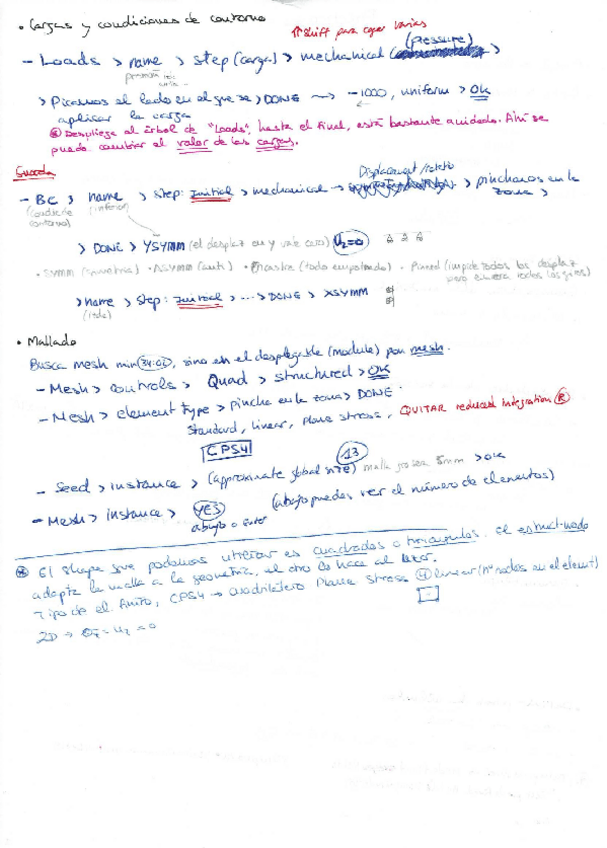 • Cargas y condiciones de contorno
↑Shift para coger varias
(pressure)
- Loads > name > step (carga) > mechanical ( >
> Picamos el lado en el que se > DONE → -1000, uniform > OK
aplicar la carga
* Despliega el árbol de "Loads", hasta el final, está bastante anidado. Ahí se
puede cambiar el valor de las cargas.
Guarda
Displacement /rotatio
- BC > name > step: Initial > mechanical → > pinchamos en la
zona >
(condición de contorno) (inferior)
> DONE > YSYMM (el desplaz en y vale cero) U2=0
• SYMM (simetría) • ASYMM (anti) • Encastre (todo empotrado) • Pinned (impide todos los desplaz
pero libera todos los giros)
> name > step: Initial > ... > DONE > XSYMM
(izda)
• Mallado
Busca mesh min 34:02, sino en el desplegable (module) pon mesh.
- Mesh > controls > Quad > structured > OK
- Mesh > element type > pincha en la zona > DONE
Standard, linear, plane stress, QUITAR reduced integration R
CPS4
13
- Seed > instance > (approximate global size) malla grosera 5mm > OK
- Mesh > instance > YES (abajo puedes ver el número de elementos)
abajo o enter
* El shape que podemos utilizar es cuadrados o triángulos. el estructurado
adapta la malla a la geometría, el otro lo hace al azar.
Tipo de el. finito, CPS4 → cuadrilátero Plane stress 4 linear (nº nodos en el element)
2D → = u2 = 0